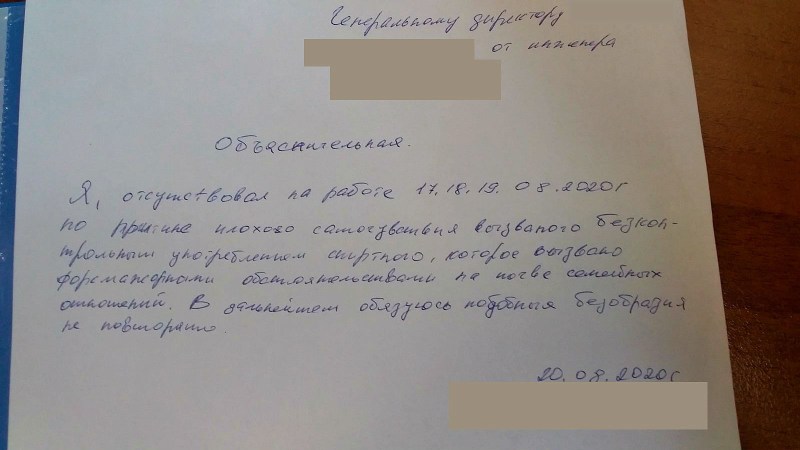 Генеральному директору
от инженера
Объяснительная.
Я, отсутствовал на работе 17.18.19. 08.2020г
по причине плохого самочувствия вызваного безкон-
трольным употреблением спиртного, которое вызвано
форсмажорными обстоятельствами на почве семейных
отношений. В дальнейшем обязуюсь подобныя безобразия
не повторять.
20.08.2020г